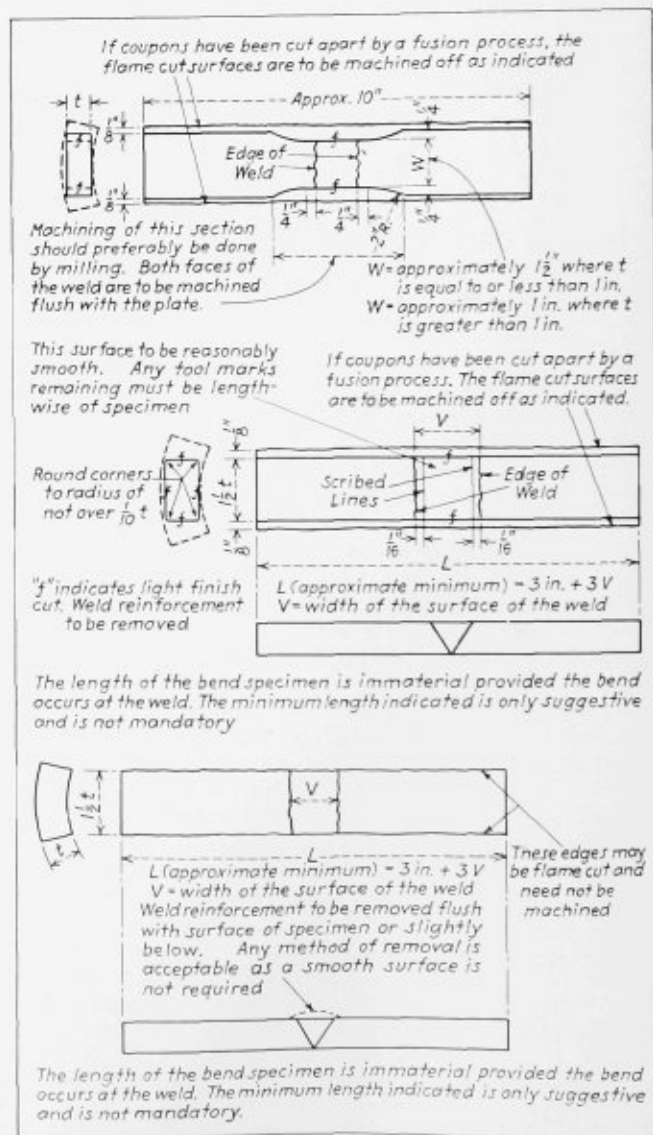 If coupons have been cut apart by a fusion process, the
flame cut surfaces are to be machined off as indicated
t
Approx. 10"
1/8"
1/4"
Edge of
Weld
f
f
W
1/8"
1/4"
1/4"
2" R.
1/4"
Machining of this section
should preferably be done
by milling. Both faces of
the weld are to be machined
flush with the plate.
W=approximately 1 1/2" where t
is equal to or less than 1 in.
W=approximately 1 in. where t
is greater than 1 in.
This surface to be reasonably
smooth. Any tool marks
remaining must be length-
wise of specimen
If coupons have been cut apart by a
fusion process. The flame cut surfaces
are to be machined off as indicated.
V
1/8"
f
f
Round corners
to radius of
not over 1/10 t
1 1/2 t
Scribed
Lines
Edge of
Weld
f
f
1/8"
1/16"
1/16"
L
"f" indicates light finish
cut. Weld reinforcement
to be removed
L (approximate minimum) = 3 in. + 3 V
V = width of the surface of the weld
The length of the bend specimen is immaterial provided the bend
occurs at the weld. The minimum length indicated is only suggestive
and is not mandatory
1 1/2 t
V
t
L
These edges may
be flame cut and
need not be
machined
L (approximate minimum) = 3 in. + 3 V
V = width of the surface of the weld
Weld reinforcement to be removed flush
with surface of specimen or slightly
below. Any method of removal is
acceptable as a smooth surface is
not required
The length of the bend specimen is immaterial provided the bend
occurs at the weld. The minimum length indicated is only suggestive
and is not mandatory.